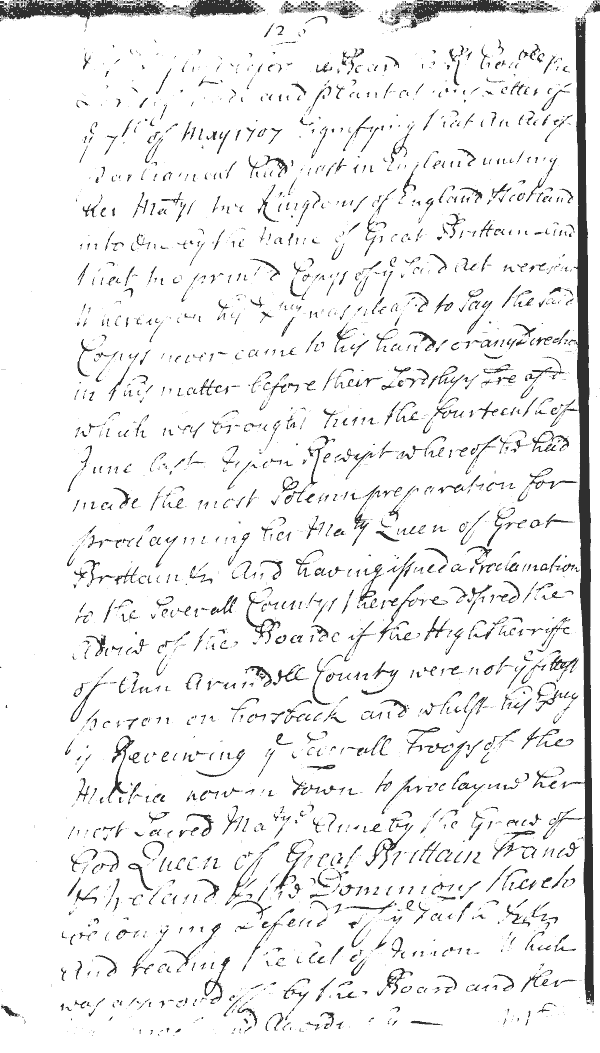 126
Board the
and Plantations Letter of
ye 7th of May 1707 Signifying that an Act of
Parliament had past in England uniting
her Matys two Kingdoms of England & Scotland
into One by the Name of Great Brittain and
that two printed Copys of ye Said Act were
Whereupon his Exncy was pleas'd to Say the Said
Copys never came to his hands or any Direction
in this matter before their Lordshyps Lre afd
which was brought him the fourteenth of
June last Upon Receipt whereof he had
made the most Solemn preparation for
proclayming her Maty Queen of Great
Brittain &c And having issued a Proclamation
to the Severall Countys therefore desired the
Advice of the Boarde if the High Sherriffe
of Ann Arundell County were not ye fittest
person on horsback and whilst his Exncy
is Reveiwing ye Severall Troops of the
Militia now in Town to proclayme her
most Sacred Matye Anne by the Grace of
God Queen of Great Brittain France
& Ireland & the Dominions thereto
belonging Defendr of ye Faith &c
And reading the Act of Union Which
was approved off by the Board and the